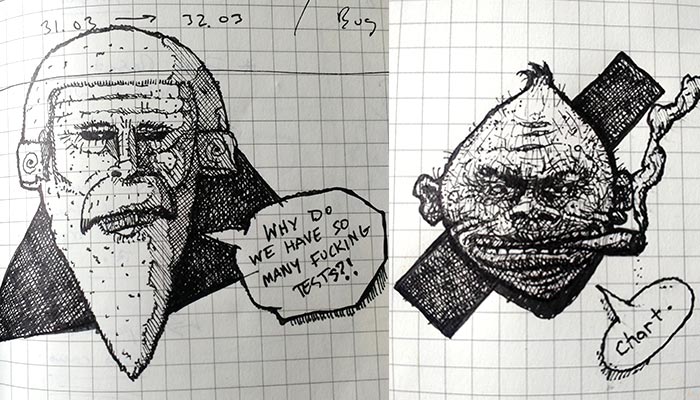 31.03 → 32.03 / Bug
WHY DO
WE HAVE SO
MANY FUCKING
TESTS?!
Chart.